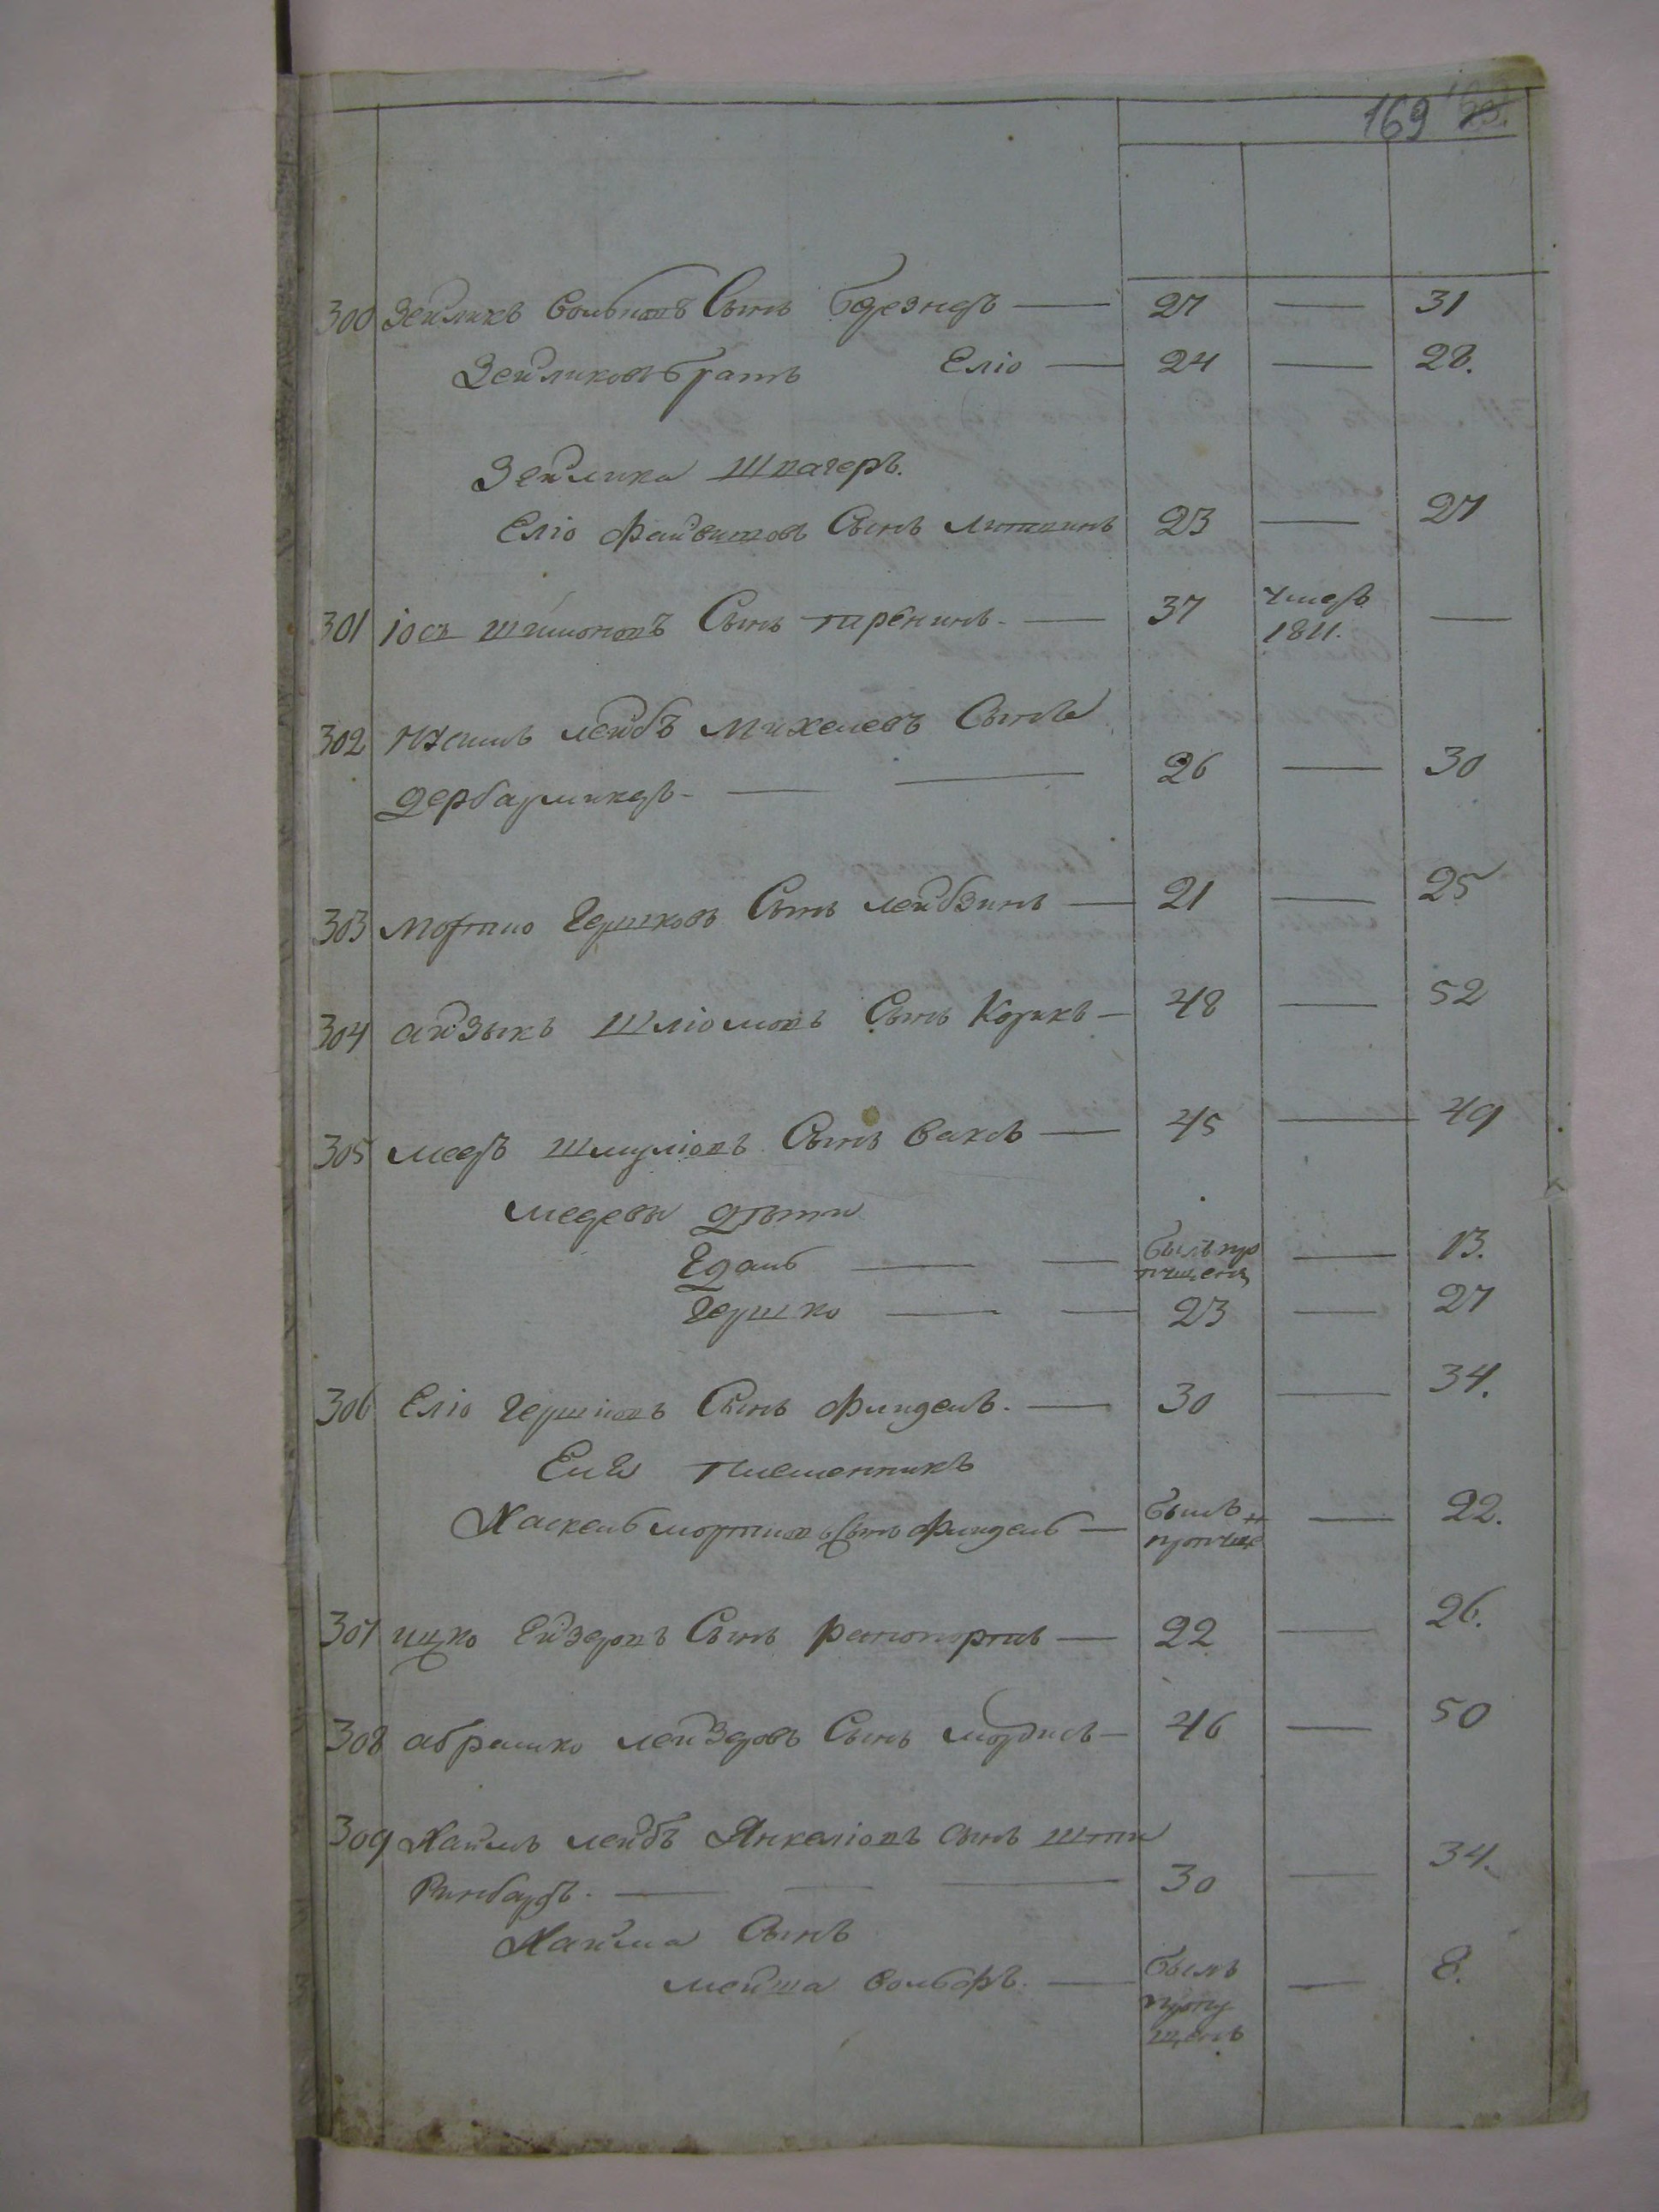 169
300 Зейликъ Вольѳовъ Сынъ Брезнеръ — 27 — 31
Зейликовъ братъ Еліо — 24 — 28.
Зейлика Швагеръ.
Еліо Файвишовъ Сынъ Литвинъ 23 — 27
301 іосъ Шимоновъ Сынъ — 37 умеръ 1811. —
302 лейбъ Михелевъ Сынъ
— — 26 — 30
303 Мортхо Гершковъ Сынъ лейбзинъ — 21 — 25
304 айзыкъ Шліомовъ Сынъ Корикъ — 48 — 52
305 мееръ Шмуліовъ Сынъ Ваксъ — 45 — 49
меервы дѣти
— — былъ пропущенъ — 13.
Гершко — — 23 — 27
306 Еліо Гершковъ Сынъ Финдель. — 30 — 34.
Его племенникъ
Хаскель Сынъ Финдель — былъ пропуще — 22.
307 ицко Сынъ рапопортъ — 22 — 26.
308 абрамко лейзеровъ Сынъ — 46 — 50
309 Хаймъ лейбъ Янкеліовъ Сынъ Ште
Ринбаръ. — — — 30 — 34.
Хайма Сынъ
мейша Вольфъ. — былъ пропущенъ — 8.